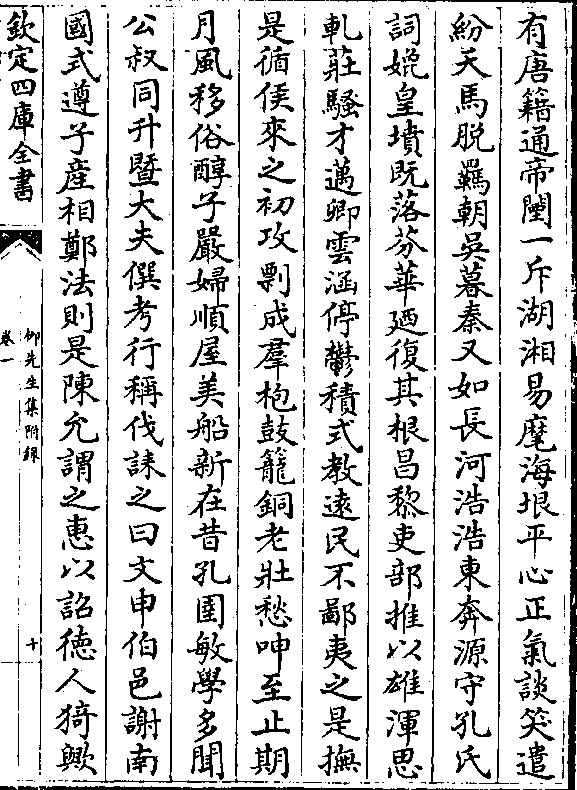 有唐籍通帝閨一斥湖湘易麾海垠平心正氣談笑遣
紛天馬脱羈朝吳暮秦又如長河浩浩東奔源守孔氏
詞媲皇墳既落芬華廼復其根昌黎吏部推以雄渾思
軋莊騷才邁卿雲涵停鬱積式教逺民不鄙夷之是撫
是循侯來之初攻剽成羣枹鼓籠銅老壯愁呻至止期
月風移俗醇子嚴婦順屋美船新在昔孔圉敏學多聞
公叔同升暨大夫僎考行稱伐誄之曰文申伯邑謝南
國式遵子産相鄭法則是陳允謂之惠以詔德人猗歟
欽定四庫全書
柳先生集附録
卷一
十